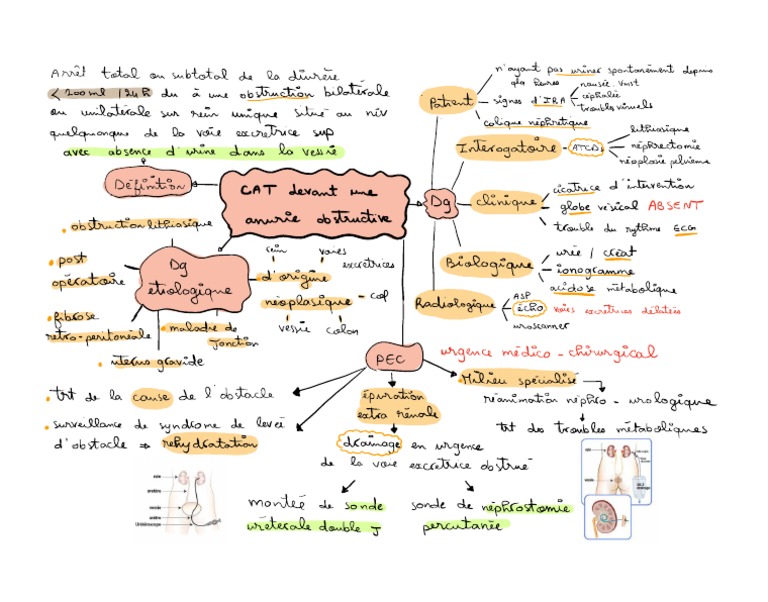 Arrêt total ou subtotal de la diurèse
< 200ml / 24h du à une obstruction bilatérale
ou unilatérale sur rein unique situé au niv
quelquonque de la voie excretrice sup
avec absence d'urine dans la vessie
Définition
CAT devant une
anurie obstructive
Dg
Patient
n'ayant pas uriner spontanément depuis
signes d'IRA
nausée. vmst
céphalée
troubles visuels
colique néphretique
Interogatoire
ATCD
lithiasique
néphrectomie
néoplasie pelvienne
clinique
cicatrice d'intervention
globe vésical ABSENT
trouble du rythme ECG
Biologique
urée / créat
ionogramme
acidose métabolique
Radiologique
ASP
ECHO voies excretrices dilatées
uroscanner
Dg
etiologique
obstruction lithiasique
post
opératoire
fibrose
retro-peritonéale
uterus gravide
maladie de
jonction
d'origine
néoplasique
rein
voies
excretrices
col
colon
vessie
PEC
urgence médico-chirurgical
trt de la cause de l'obstacle
surveillance de syndrome de levée
d'obstacle ⇒ rehydratation
épuration
extra rénale
drainage en urgence
de la voie excretrice obstrué
monteé de sonde
urétérale double J
sonde de néphrostomie
percutanée
Milieu spécialisé
réanimation néphro-urologique
trt des troubles métaboliques